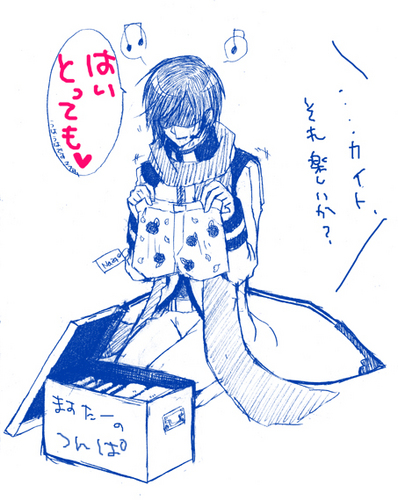 …カイト、
それ楽しいか？
はい
とっても♥
ますたーの
つんぱ